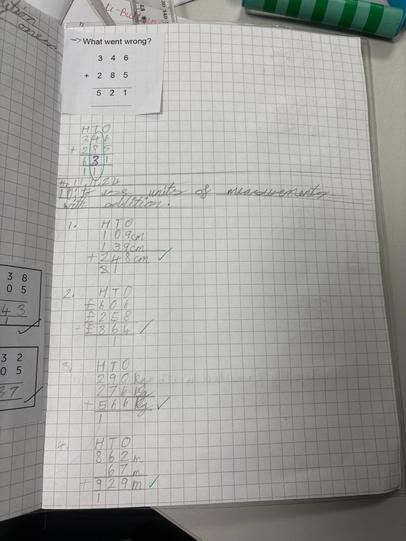 What went wrong?
3 4 6
+ 2 8 5
5 2 1
H T O
3 4 6
+ 2 8 5
6 3 1
1 1
use units of measurements
with addition.
1.
H T O
1 0 9cm
1 39cm
+ 2 4 8cm
2.
H T O
£ 6 0 6
£ 2 5 8
£ 8 6 4
1
3.
H T O
2 9 0kg
2 7 6kg
+ 5 6 6kg
1
4.
H T O
8 6 2m
6 7m
+ 9 2 9m
1
3 8
0 5
4 3
1
3 2
0 5
3 7